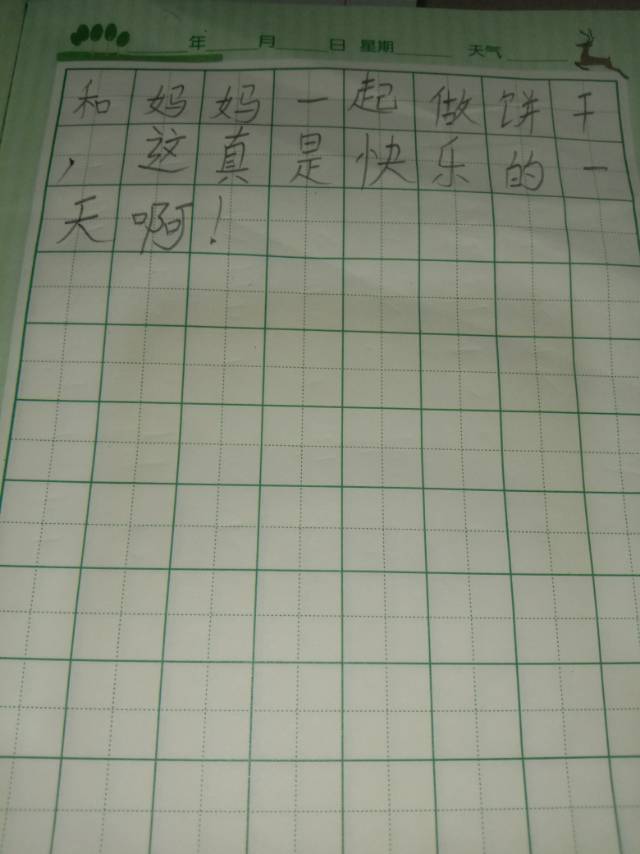 年 月 日 星期 天气
和妈妈一起做饼干
，这真是快乐的一
天啊！